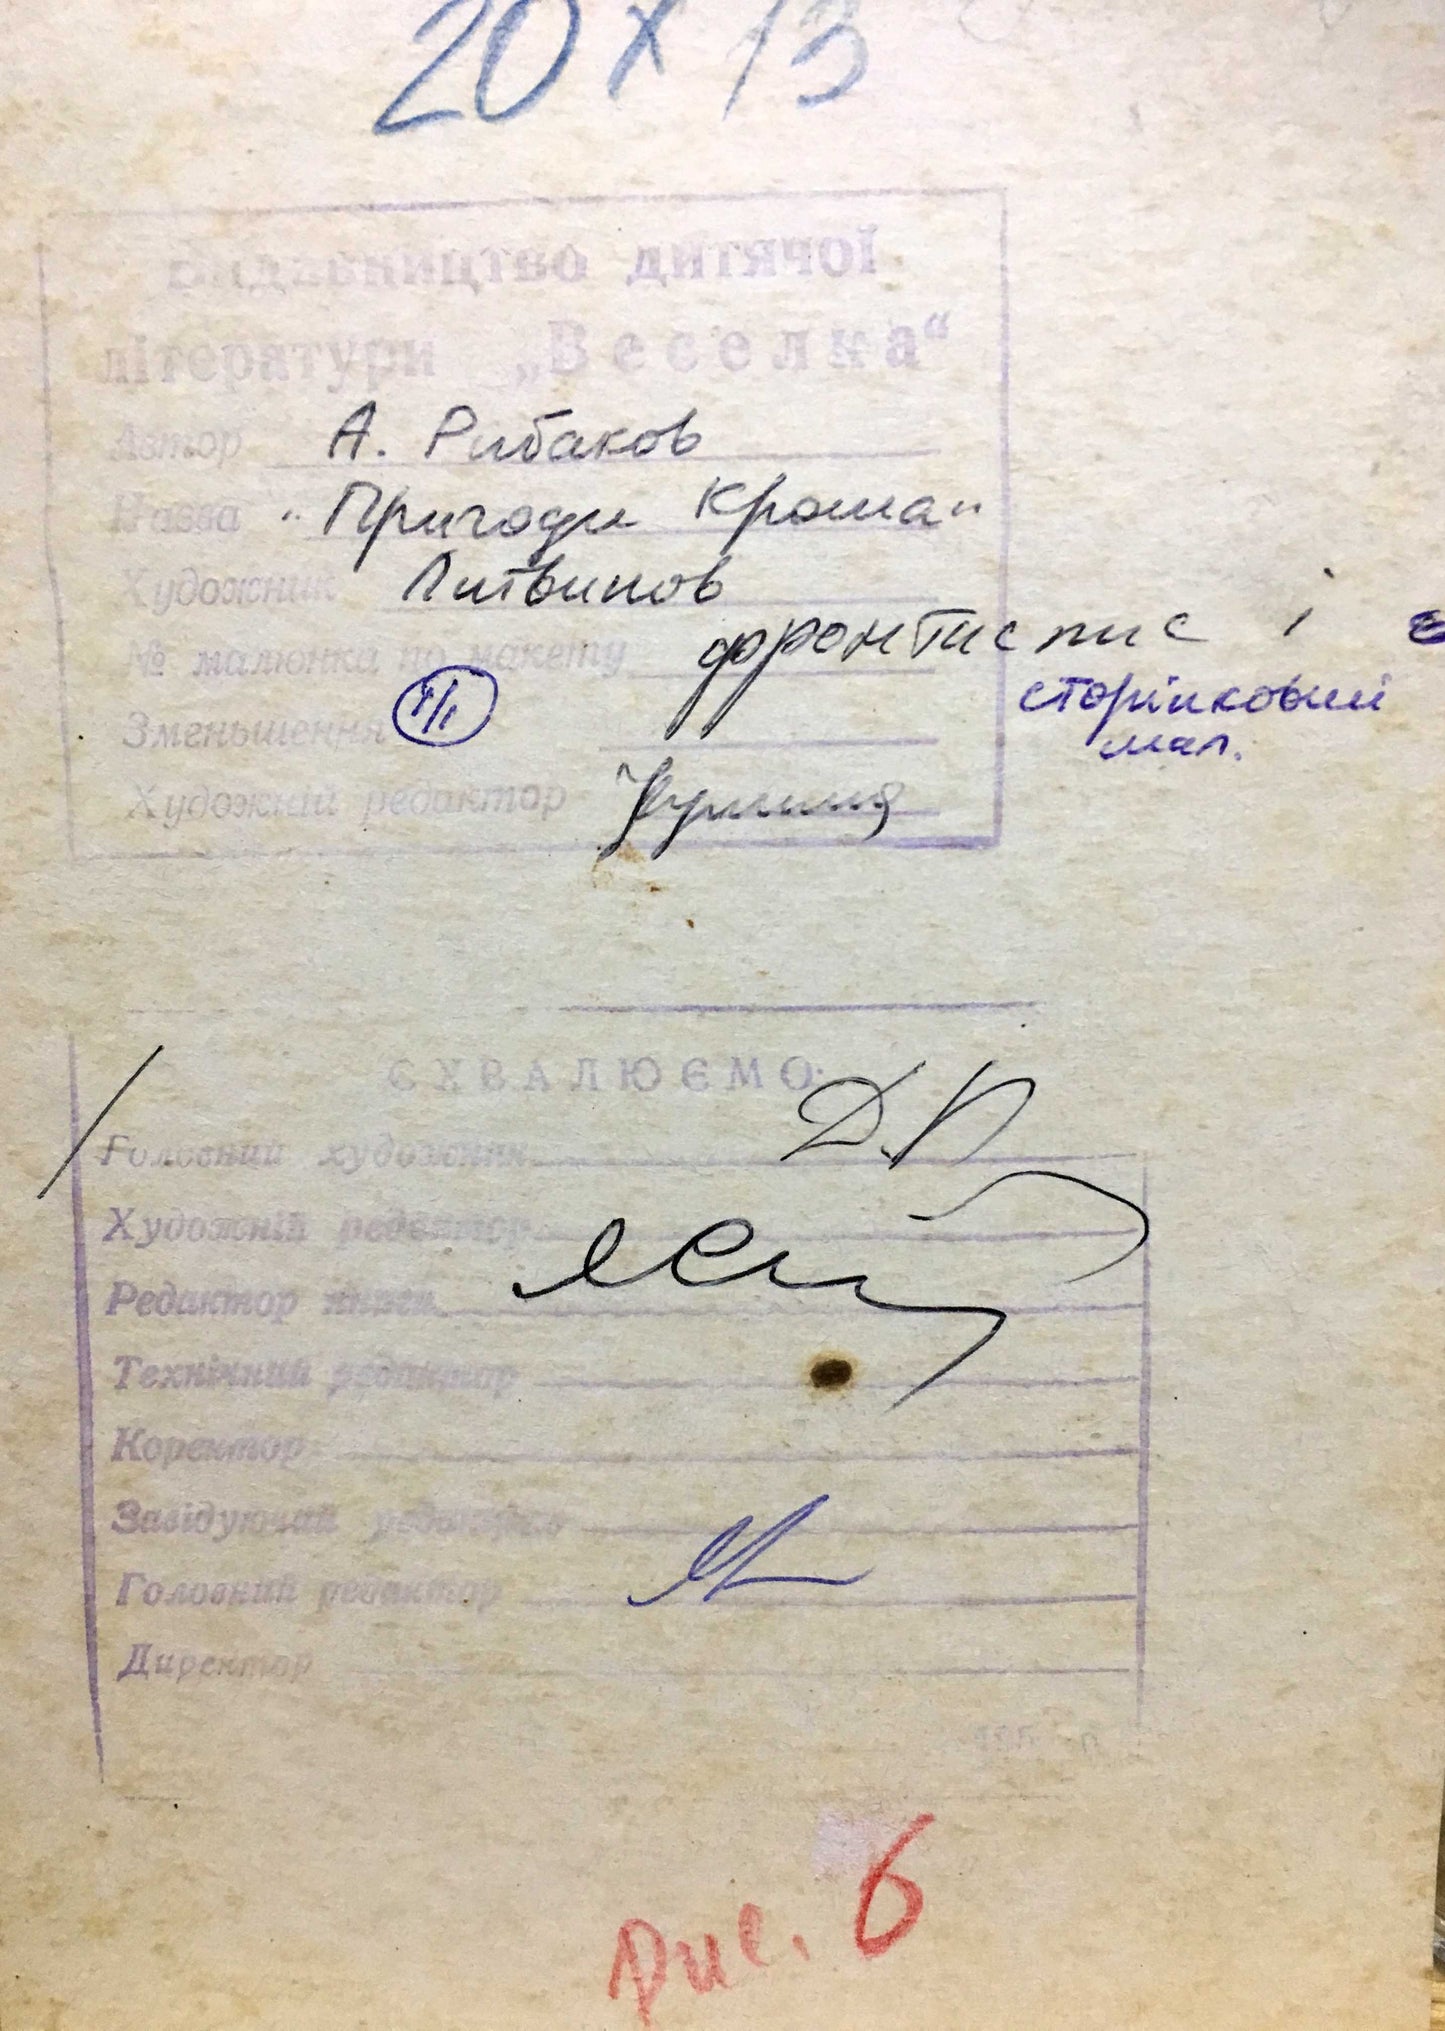 20 х 13
Видавництво дитячої
літератури „Веселка“
Автор А. Рибаков
Назва "Пригоди Кроша"
Художник Литвинов
№ малюнка по макету фронтиспис і
сторінковий
мал.
Зменьшення 1/1
Художній редактор
СХВАЛЮЄМО:
Головний художник
Художній редактор
Редактор книги
Технічний редактор
Коректор
Завідуючий редакцією
Головний редактор
Директор
Рис. 6